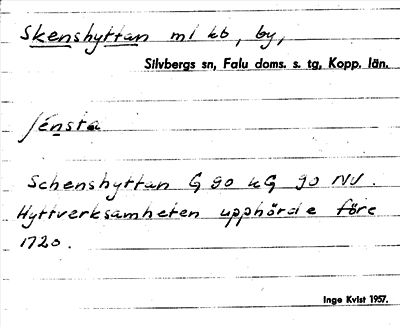 Skenshyttan ml kb, by,
Silvbergs sn, Falu doms. s. tg, Kopp. län.
Schenshyttan G 90 kG 90 NV.
Hyttverksamheten upphörde före
1720.
Inge Kvist 1957.